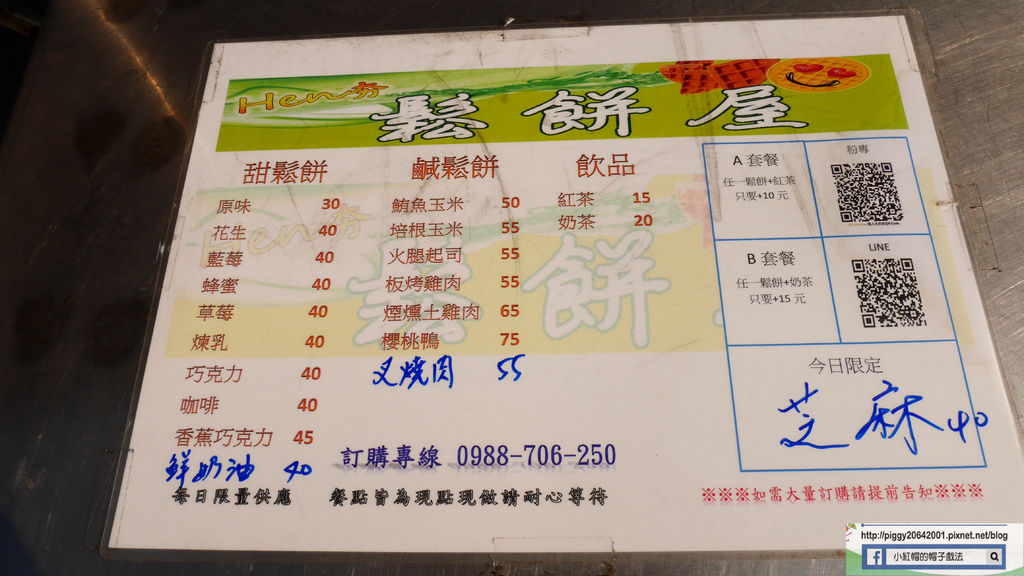 Hen夯
鬆餅屋
甜鬆餅
原味 30
花生 40
藍莓 40
蜂蜜 40
草莓 40
煉乳 40
巧克力 40
咖啡 40
香蕉巧克力 45
鮮奶油 40
每日限量供應
鹹鬆餅
鮪魚玉米 50
培根玉米 55
火腿起司 55
板烤雞肉 55
煙燻土雞肉 65
櫻桃鴨 75
叉燒肉 55
飲品
紅茶 15
奶茶 20
A 套餐
任一鬆餅+紅茶
只要+10 元
粉專
B 套餐
任一鬆餅+奶茶
只要+15 元
LINE
今日限定
芝麻 40
訂購專線 0988-706-250
餐點皆為現點現做請耐心等待
※※※如需大量訂購請提前告知※※※
Hen夯
鬆餅
http://piggy20642001.pixnet.net/blog
小紅帽的帽子戲法